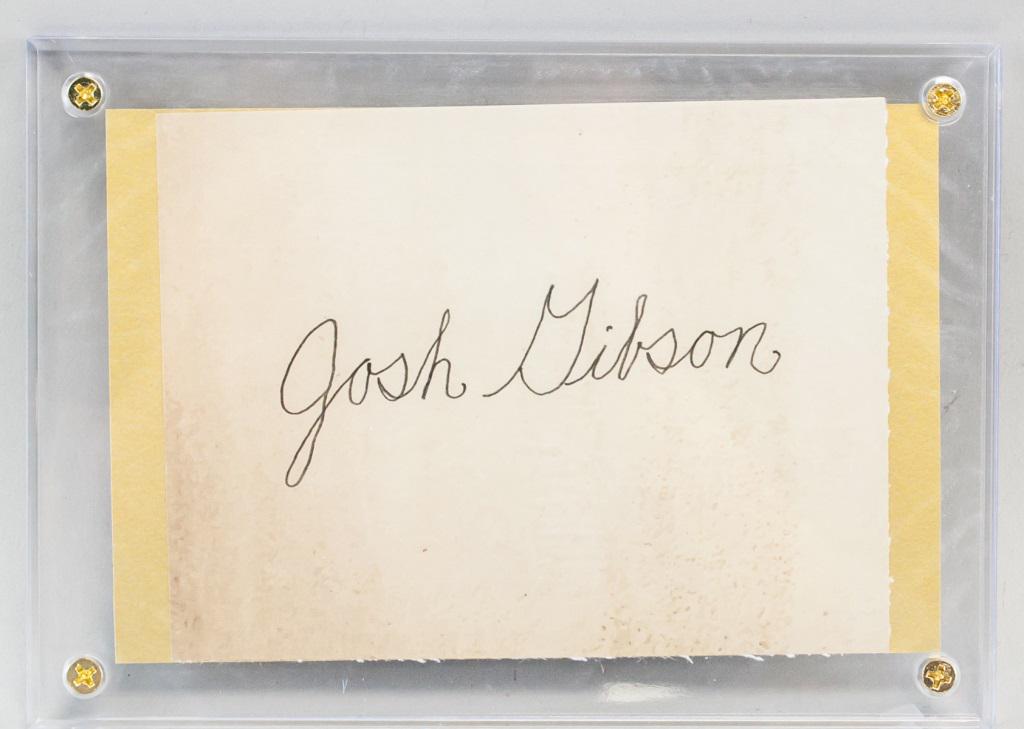 Josh Gibson